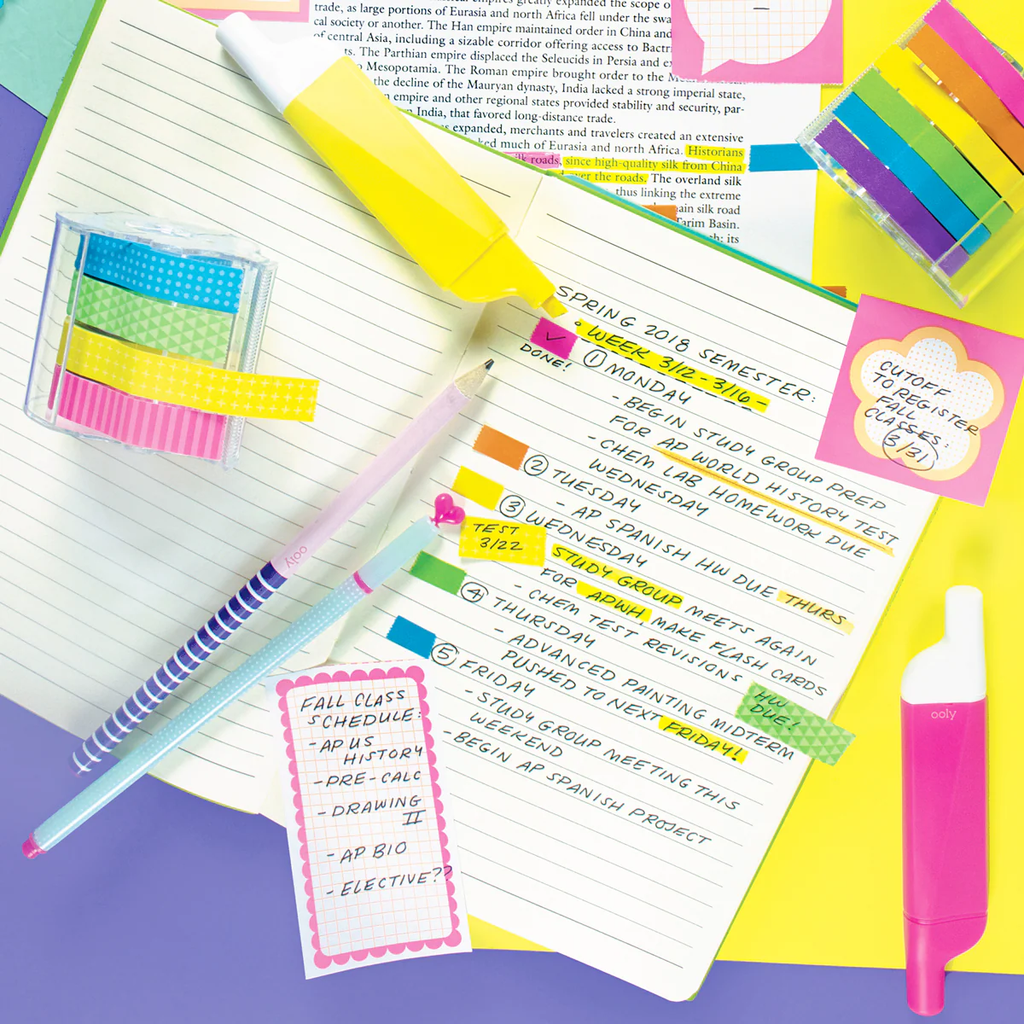 empires greatly expanded the scope o
trade, as large portions of Eurasia and north Africa fell under the swa
cal society or another. The Han empire maintained order in China and
of central Asia, including a sizable corridor offering access to Bactr
ts. The Parthian empire displaced the Seleucids in Persia and ex
Mesopotamia. The Roman empire brought order to the
the decline of the Mauryan dynasty, India lacked a strong imperial state,
empire and other regional states provided stability and security, par-
India, that favored long-distance trade.
expanded, merchants and travelers created an extensive
ked much of Eurasia and north Africa. Historians
silk roads, since high-quality silk from China
over the roads. The overland silk
thus linking the extreme
main silk road
Tarim Basin.
its
SPRING 2018 SEMESTER:
• WEEK 3/12-3/16-
✓
DONE!
① MONDAY
- BEGIN STUDY GROUP PREP
FOR AP WORLD HISTORY TEST
- CHEM LAB HOMEWORK DUE
WEDNESDAY
② TUESDAY
- AP SPANISH HW DUE THURS
③ WEDNESDAY
TEST
3/22
STUDY GROUP MEETS AGAIN
FOR APWH MAKE FLASH CARDS
- CHEM TEST REVISIONS
④ THURSDAY
- ADVANCED PAINTING MIDTERM
PUSHED TO NEXT FRIDAY!
HW
DUE!
⑤ FRIDAY
- STUDY GROUP MEETING THIS
WEEKEND
- BEGIN AP SPANISH PROJECT
CUTOFF
TO REGISTER
FALL
CLASSES:
3/31
FALL CLASS
SCHEDULE:
- AP US
HISTORY
- PRE-CALC
- DRAWING
II
- AP BIO
- ELECTIVE??
ooly
ooly